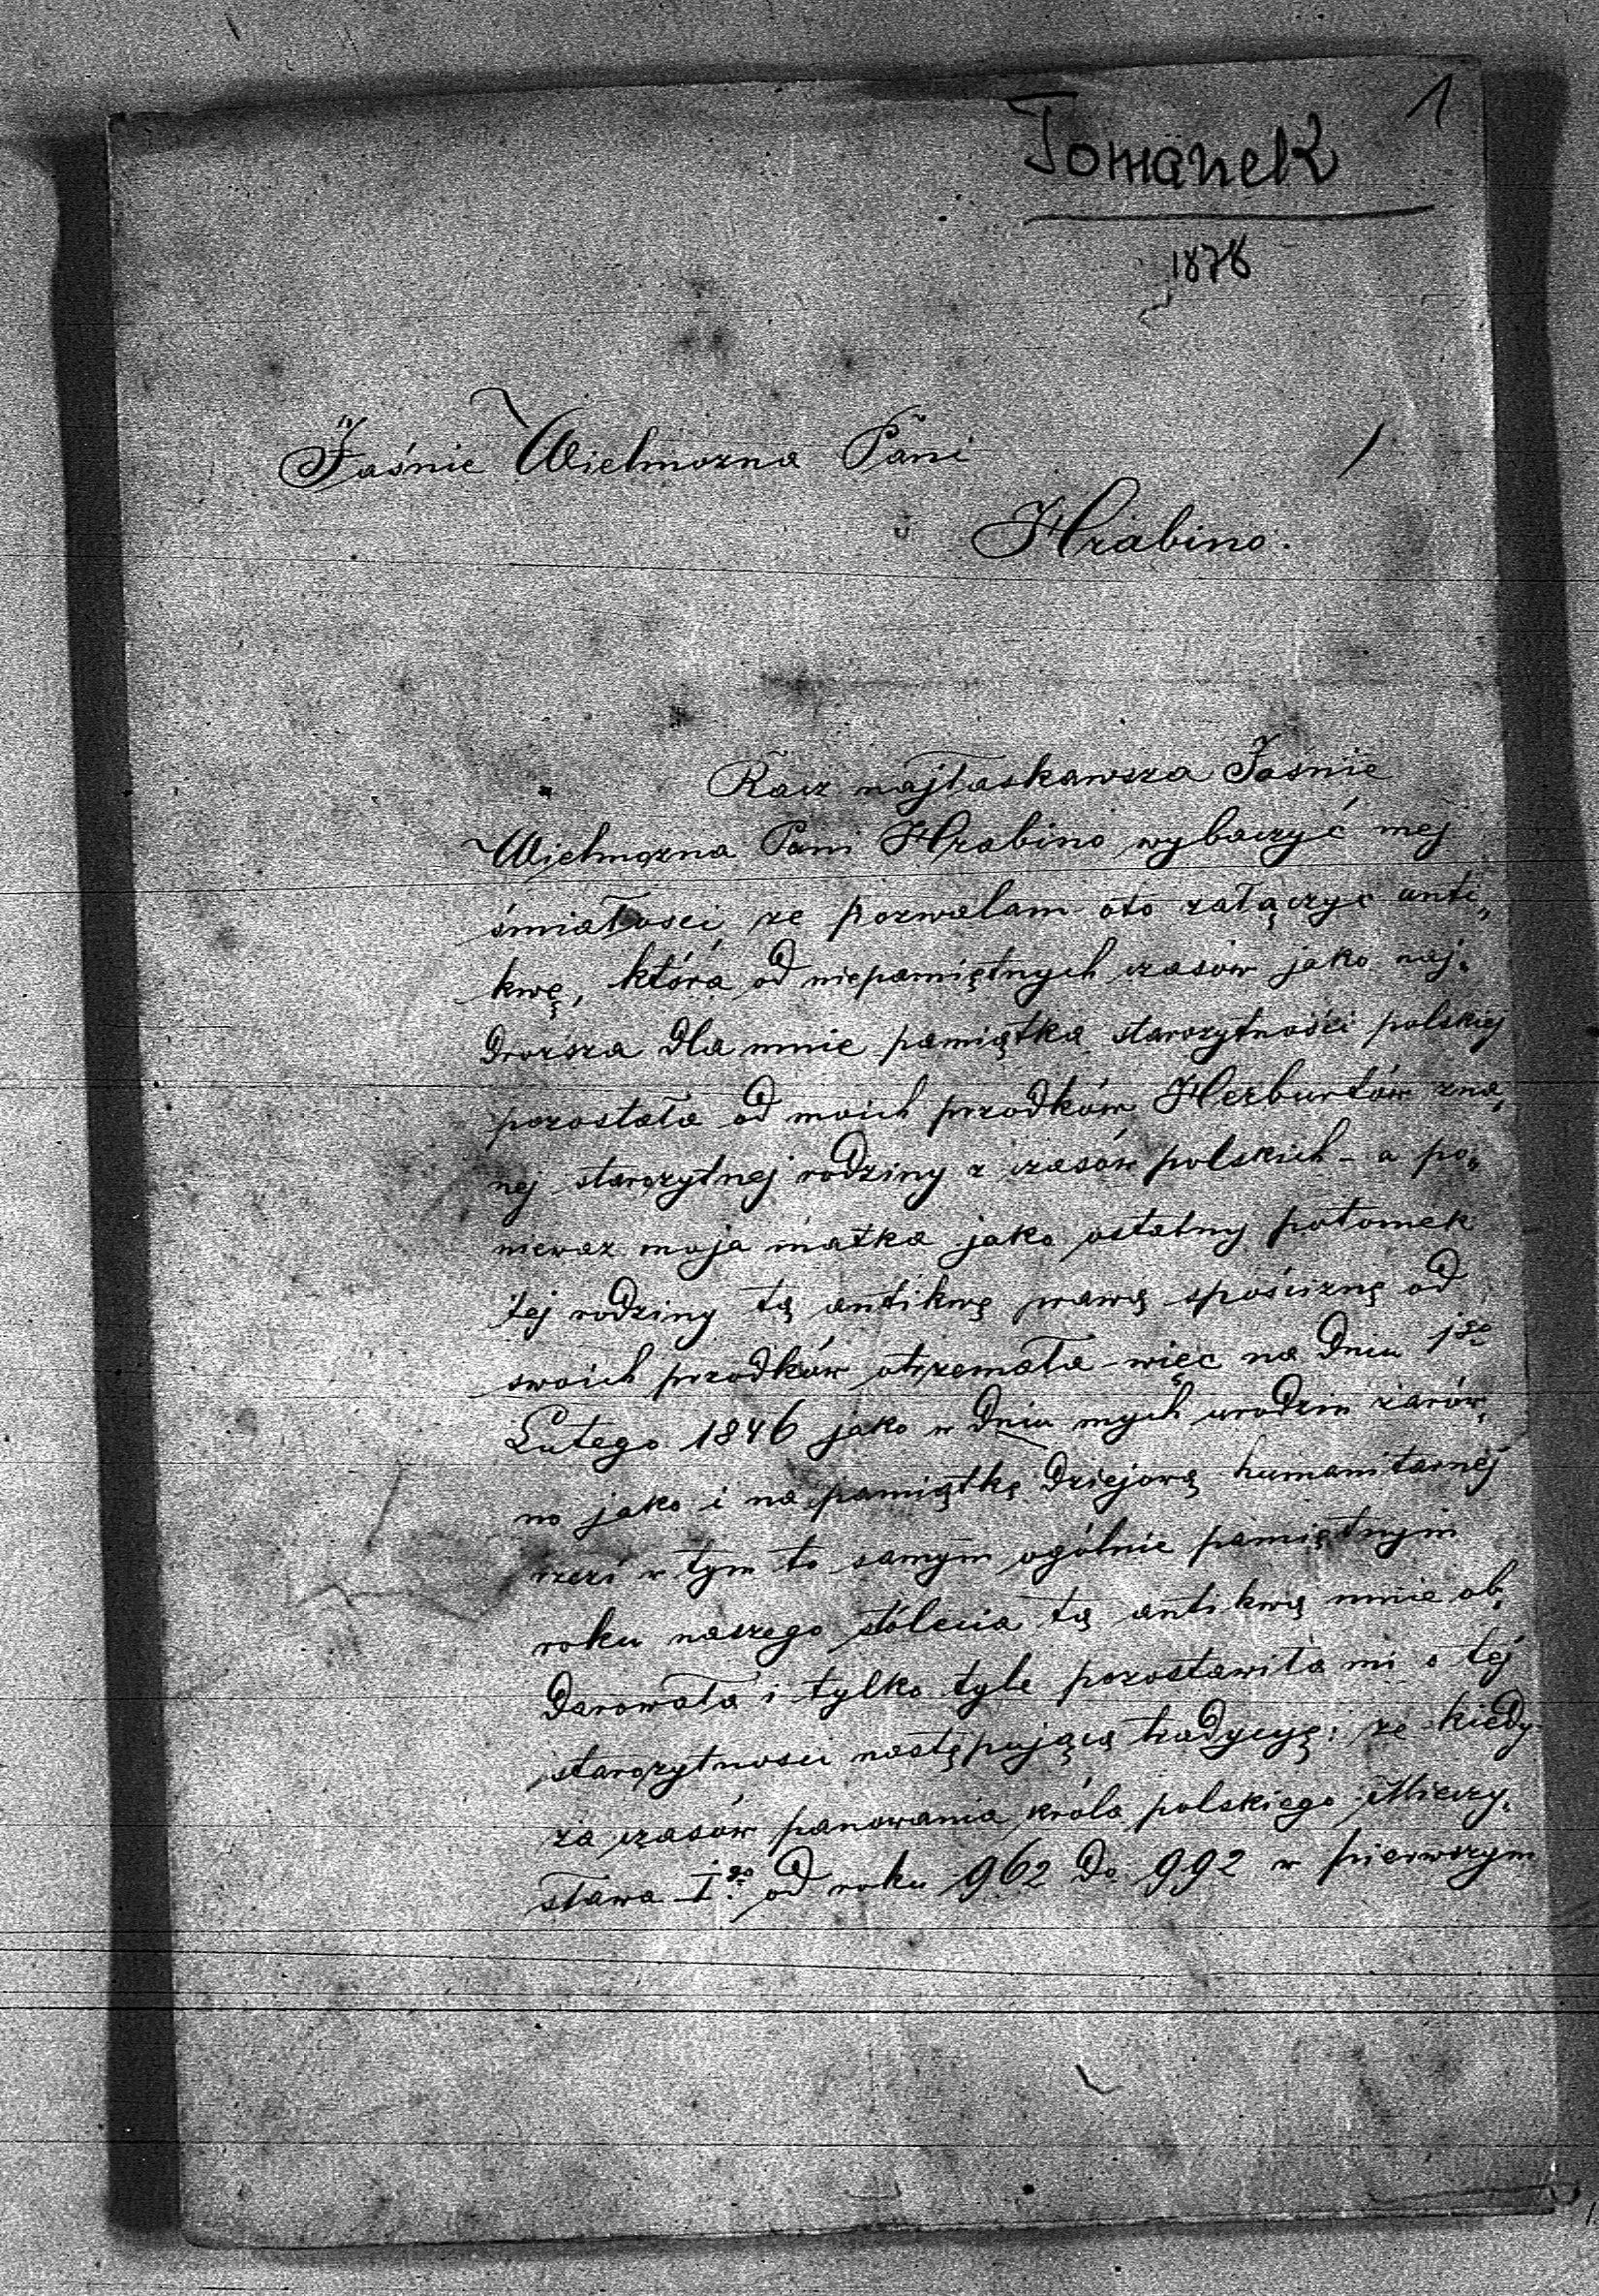 1
Tomanek
1878
Jaśnie Wielmozna Pani
Hrabino.
Racz najłaskawsza Jaśnie
Wielmozna Pani Hrabino wybaczyć mej
śmiałosci ze pozwalam oto załączyć anti„
kwę, która od niepamiętnych czasów jako naj„
drozsza dla mnie pamiątka starozytności polskiej
pozostała od moich przodków Herburtów zna„
nej starozytnej rodziny z czasów polskich - a po„
niewaz moja matka jako ostatny potomek
tej rodziny tą antikwę prawą spościznę od
swoich przodków otrzemała - więc na dniu 1go
Lutego 1846 jako w dniu mych urodzin zarów„
no jako i na pamiątkę dziejową humanitarnej
rzezi w tym to samym ogólnie pamiętnym
roku naszego stólecia tą antikwą mnie ob„
darowała i tylko tyle pozostawiła mi o tej
starozytnosci następującą tradycyę: ze kiedy
za czasów panowania króla polskiego Mieczy„
sława I.go od roku 962 do 992 w pierwszym